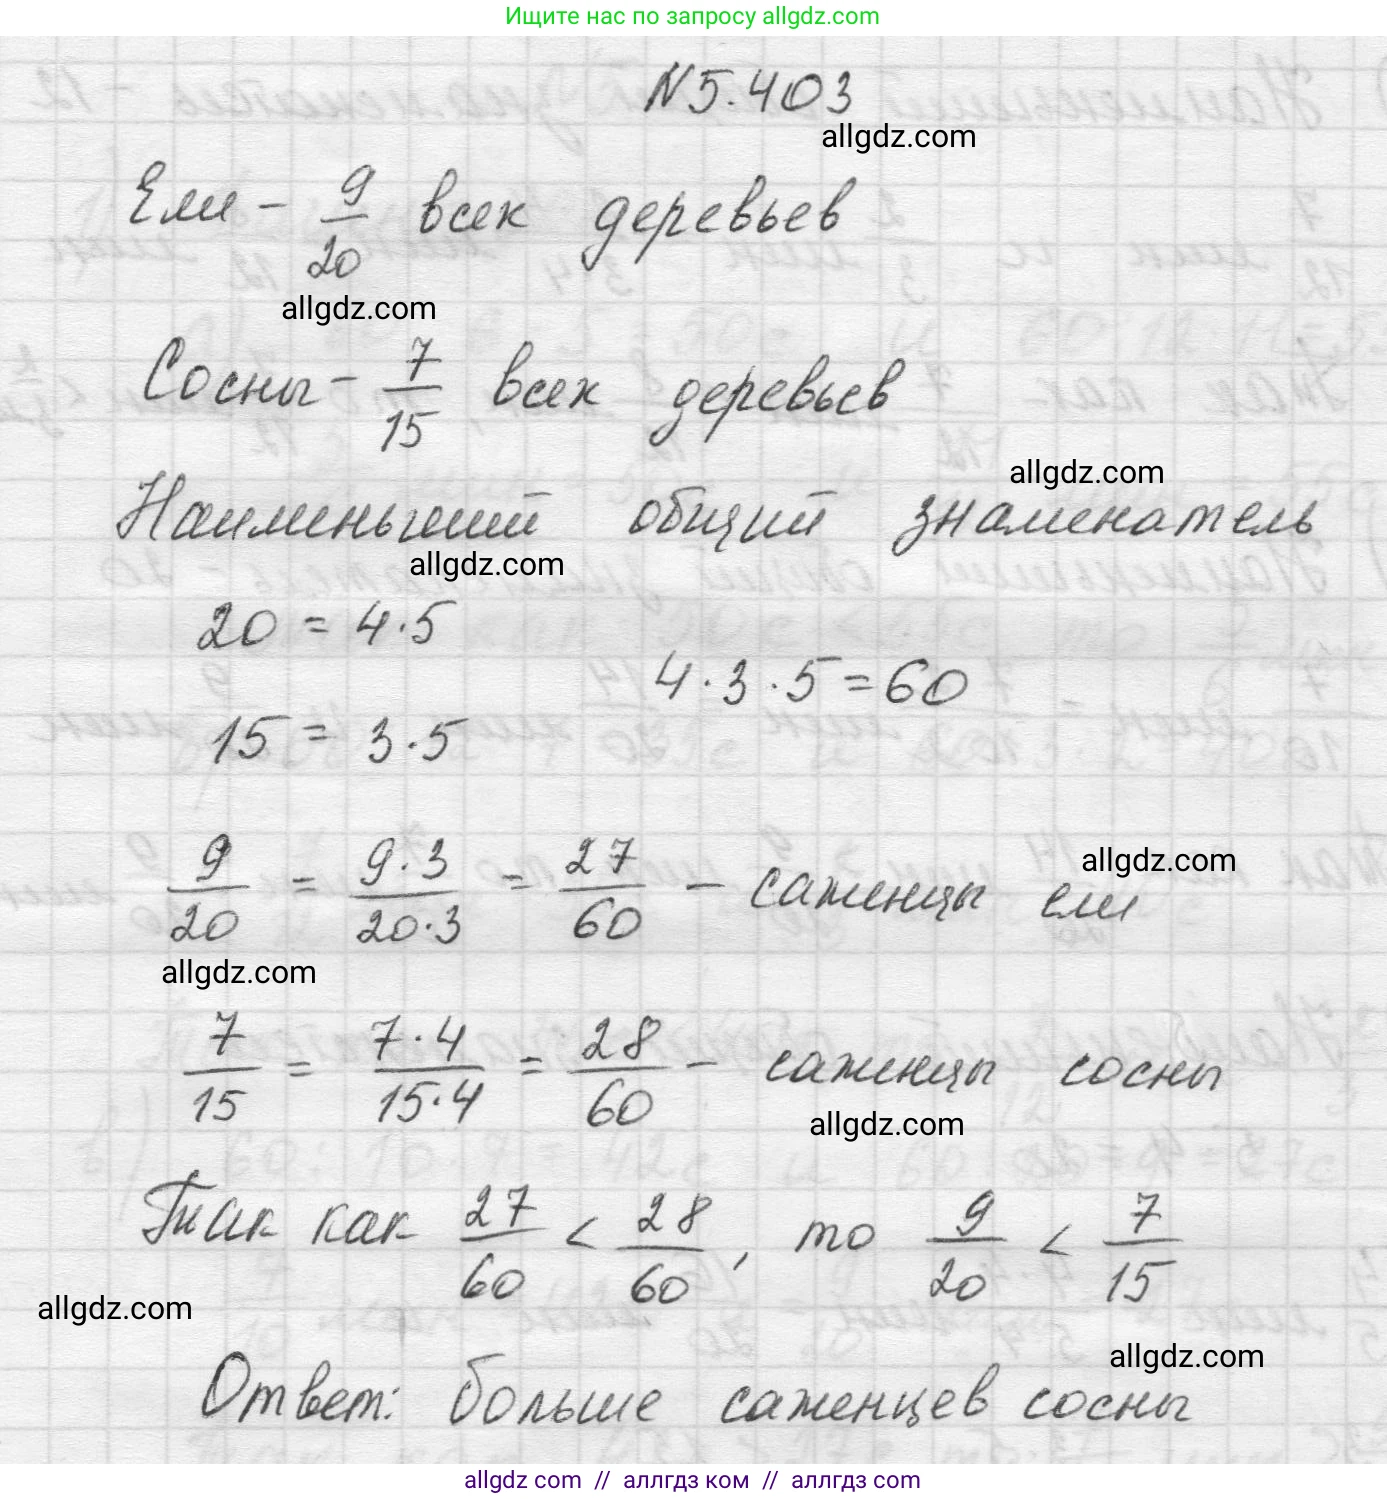 Ищите нас по запросу allgdz.com
N 5.403
allgdz.com
Ели - 9/20 всех деревьев
allgdz.com
Сосны - 7/15 всех деревьев
allgdz.com
Наименьший общий знаменатель
allgdz.com
20 = 4·5
4·3·5=60
15 = 3·5
allgdz.com
9/20 = 9·3/20·3 = 27/60 - саженцы ели
allgdz.com
7/15 = 7·4/15·4 = 28/60 - саженцы сосны
allgdz.com
Так как 27/60 < 28/60, то 9/20 < 7/15
allgdz.com
allgdz.com
Ответ: больше саженцев сосны
allgdz.com // аллгдз ком // аллгдз com